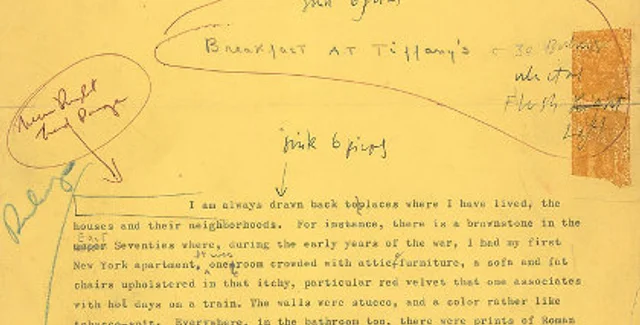 sink 6 picas
Breakfast AT Tiffany's
Flush
Left
sink 6 picas
I am always drawn back to places where I have lived, the
houses and their neighborhoods. For instance, there is a brownstone in the
East
upper Seventies where, during the early years of the war, I had my first
New York apartment, one room crowded with attic furniture, a sofa and fat
chairs upholstered in that itchy, particular red velvet that one associates
with hot days on a train. The walls were stucco, and a color rather like
tobacco-spit. Everywhere, in the bathroom too, there were prints of Roman